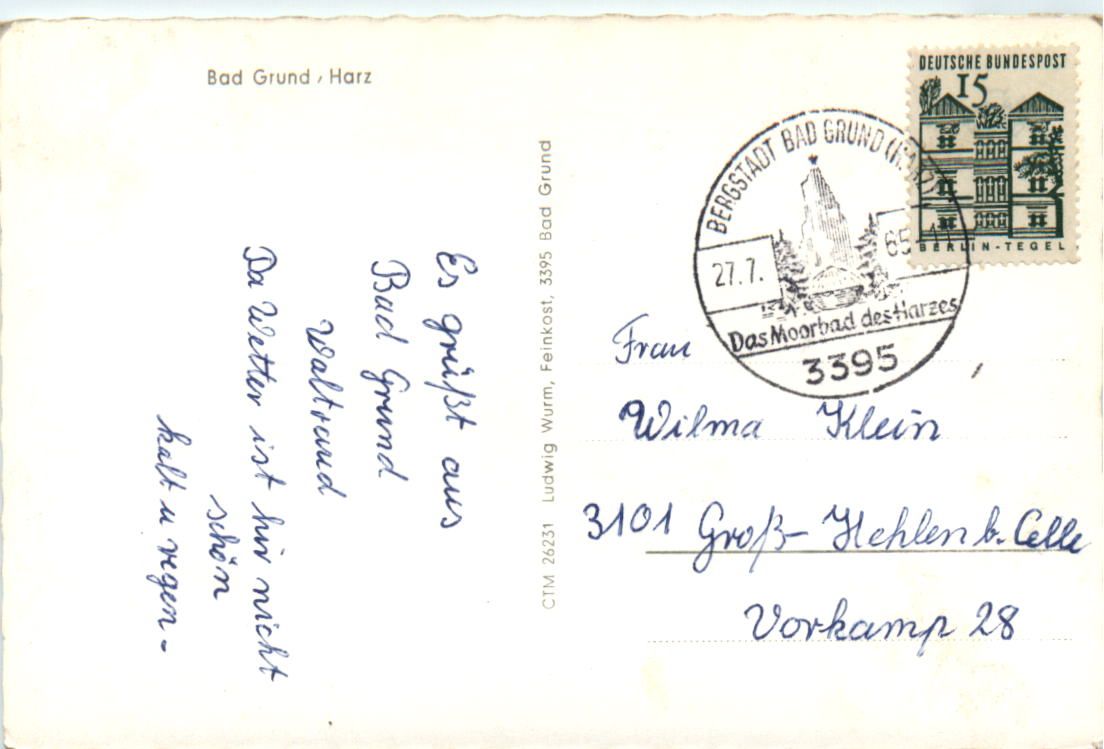 Bad Grund / Harz
Es grüßt aus
Bad Grund
Waltraud
Da Wetter ist hir nicht
schön
kalt u regen-
CTM 26231 Ludwig Wurm, Feinkost, 3395 Bad Grund
DEUTSCHE BUNDESPOST
15
BERLIN-TEGEL
BERGSTADT BAD GRUND (HARZ)
27.7. 65
Das Moorbad des Harzes
3395
Frau
Wilma Klein
3101 Groß-Hehlen b. Celle
Vorkamp 28